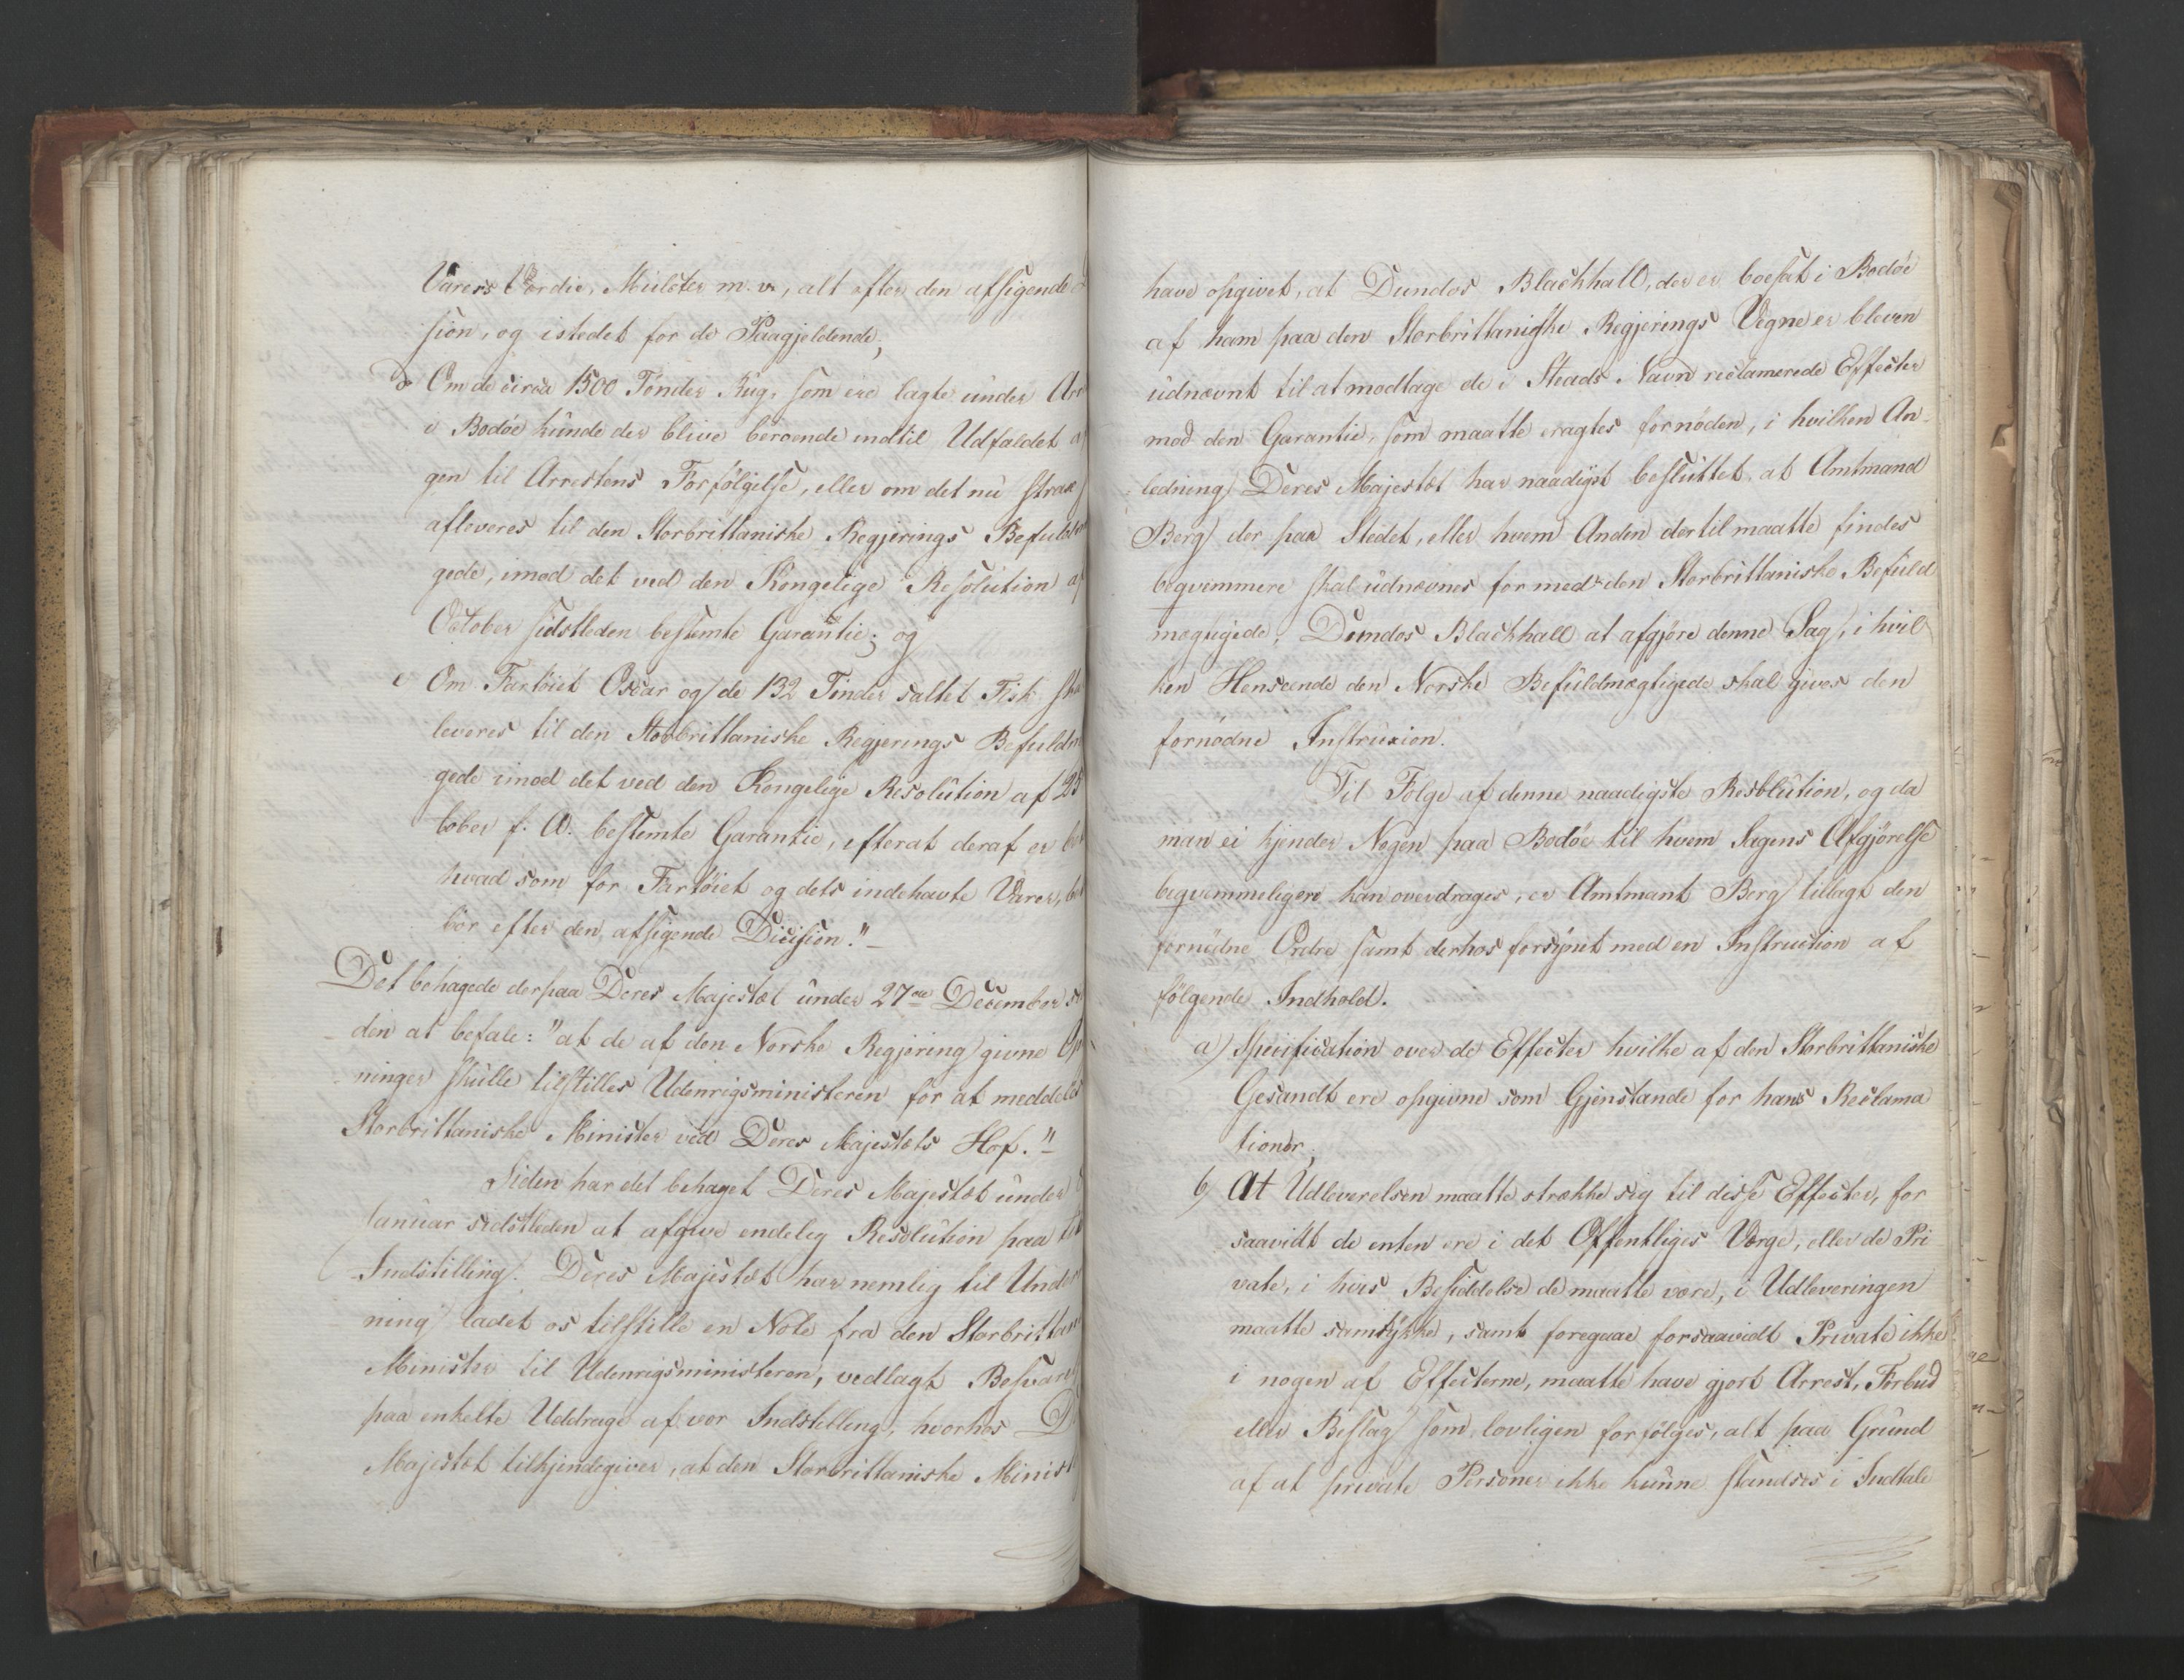 Varers Værdie, Mulcter m. v., alt efter den afsigende
sion, og istedet for de Paagjeldende,
d Om de circa 1500 Tønder Rug, som ere lagte under Arr
i Bodøe kunde der blive beroende indtil Udfaldet af
gen til Arrestens Forfølgelse, eller om det nu strax
afleveres til den Storbrittaniske Regjerings Befuldm
gede, imod det ved den Kongelige Resolution af
October sidstleden bestemte Garantie; og
e Om Fartøiet Oscar og de 132 Tønder saltet Fisk ska
leveres til den Storbrittaniske Regjerings Befuldm
gede imod det ved den Kongelige Resolution af 25
tober f. A. bestemte Garantie, efterat deraf er
hvad som for Fartøiet og dets indehavte Varer,
bør efter den afsigende Dicision."
Det behagede derpaa Deres Majestæt under 27de December
den at befale: "at de af den Norske Regjering givne Op
ninger skulle tilstilles Udenrigsministeren for at meddeles
Storbrittaniske Minister ved Deres Majestæts Hof."
Siden har det behaget Deres Majestæt under
Januar sidstleden at afgive endelig Resolution paa
Indstilling. Deres Majestæt har nemlig til Under
ning ladet os tilstille en Note fra den Storbrittan
Minister til Udenrigsministeren, vedlagt Besvar
paa enkelte Uddrage af vor Indstilling, hvorhos D
Majestæt tilkjendegiver, at den Storbrittaniske Minist
have opgivet, at Dundas Blackhall, der er boesat i Bodøe
af ham paa den Storbrittaniske Regjerings Vegne er bleven
udnævnt til at modtage de i Steads Navn reclamerede Effecter
mod den Garantie, som maatte eragtes fornøden, i hvilken An-
ledning Deres Majestæt har naadigst besluttet at Amtmand
Berg der paa Stedet, eller hvem Anden dertil maatte findes
beqvemmere skal udnævnes for med den Storbrittaniske Befuld
mægtigede, Dundas Blackhall at afgjøre denne Sag, i hvil
ken Henseende den Norske Befuldmægtigede skal gives den
fornødne Instruxion.
Til Følge af denne naadigste Resolution, og da
man ei kjender Nogen paa Bodøe til hvem Sagens Afgjørelse
beqvemmeligere kan overdrages, er Amtmant Berg tillagt den
fornødne Ordre samt derhos forsynet med en Instruction af
følgende Indhold.
a) Specification over de Effecter hvilke af den Storbrittaniske
Gesandt ere opgivne som Gjenstande for hans Reclama
tioner,
b) At Udleverelsen maatte strække sig til disse Effecter, for
saavidt de enten ere i det Offentliges Værge, eller de Pri
vate, i hvis Besiddelse de maatte være, i Udleveringen
maatte samtykke, samt foregaae forsaavidt Private ikke
i nogen af Effecterne, maatte have gjort Arrest, Forbud
eller Beslag som lovligen forfølges, alt paa Grund
af at private Personer ikke kunne standses i Indtale